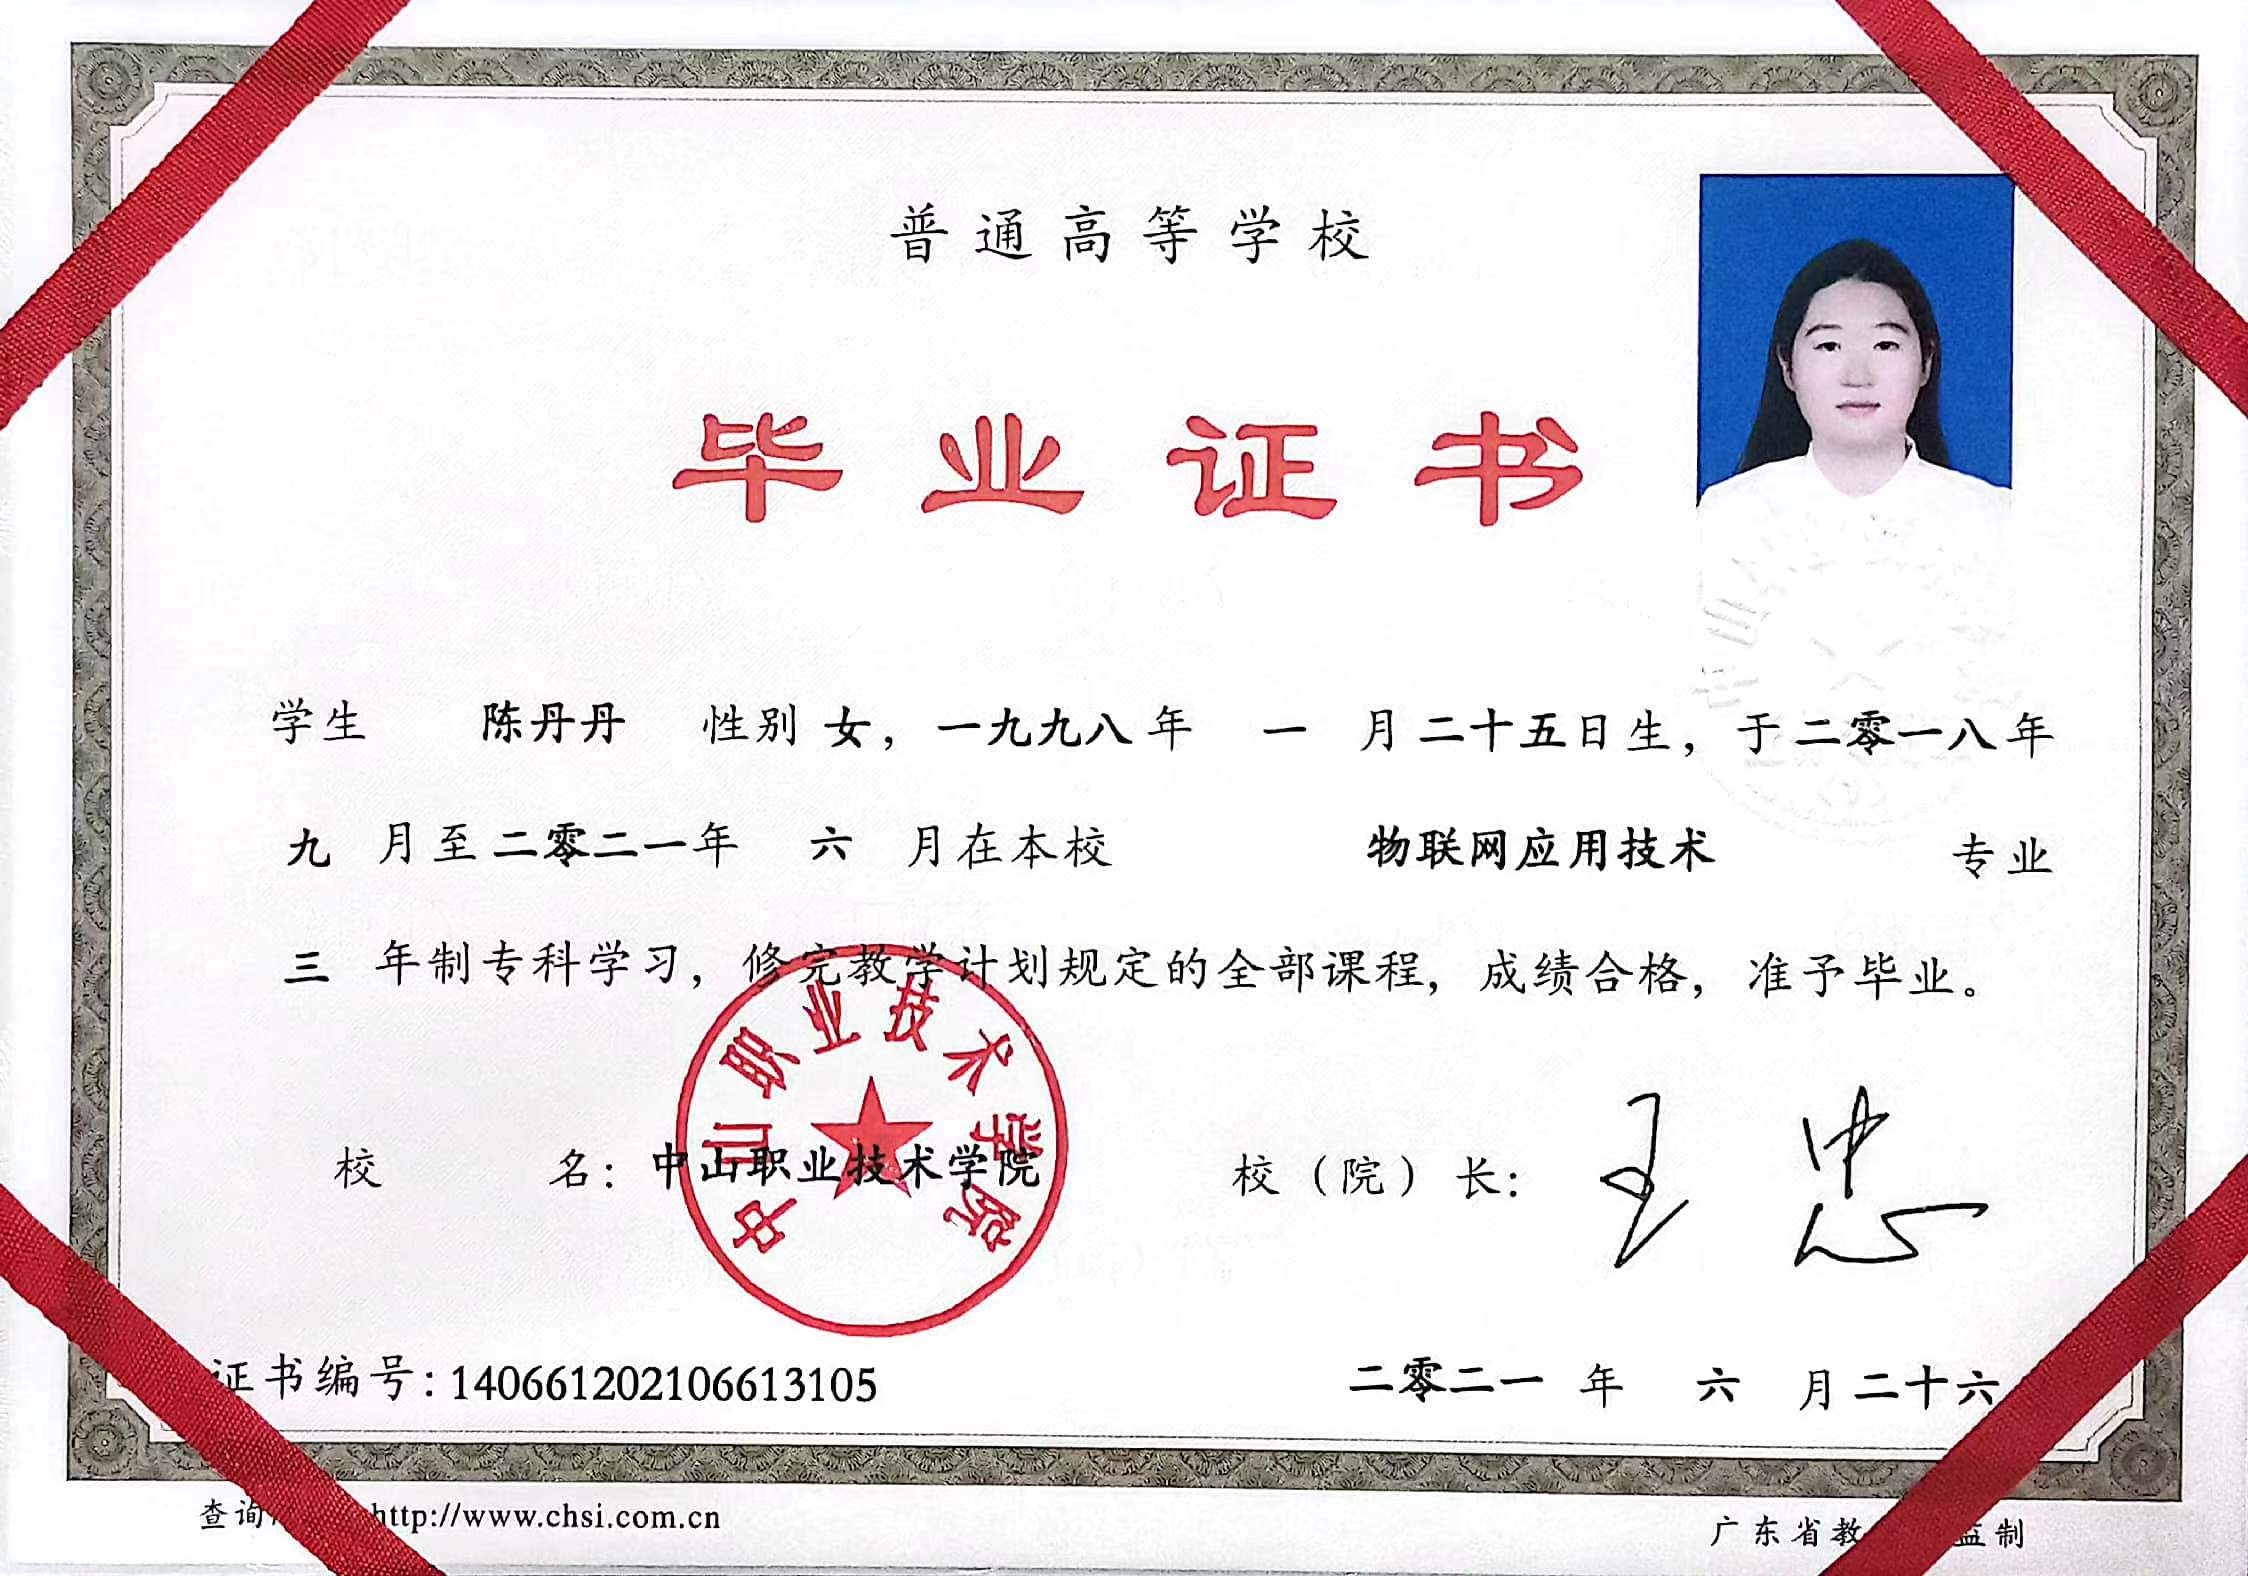 普通高等学校
毕业证书
学生 陈丹丹 性别 女，一九九八年 一 月二十五日生，于二零一八年
九 月至二零二一年 六 月在本校 物联网应用技术 专业
三 年制专科学习，修完教学计划规定的全部课程，成绩合格，准予毕业。
中山职业技术学院
校 名：中山职业技术学院 校（院）长：王忠
证书编号：140661202106613105 二零二一 年 六 月二十六
查询 http://www.chsi.com.cn 广东省教 监制